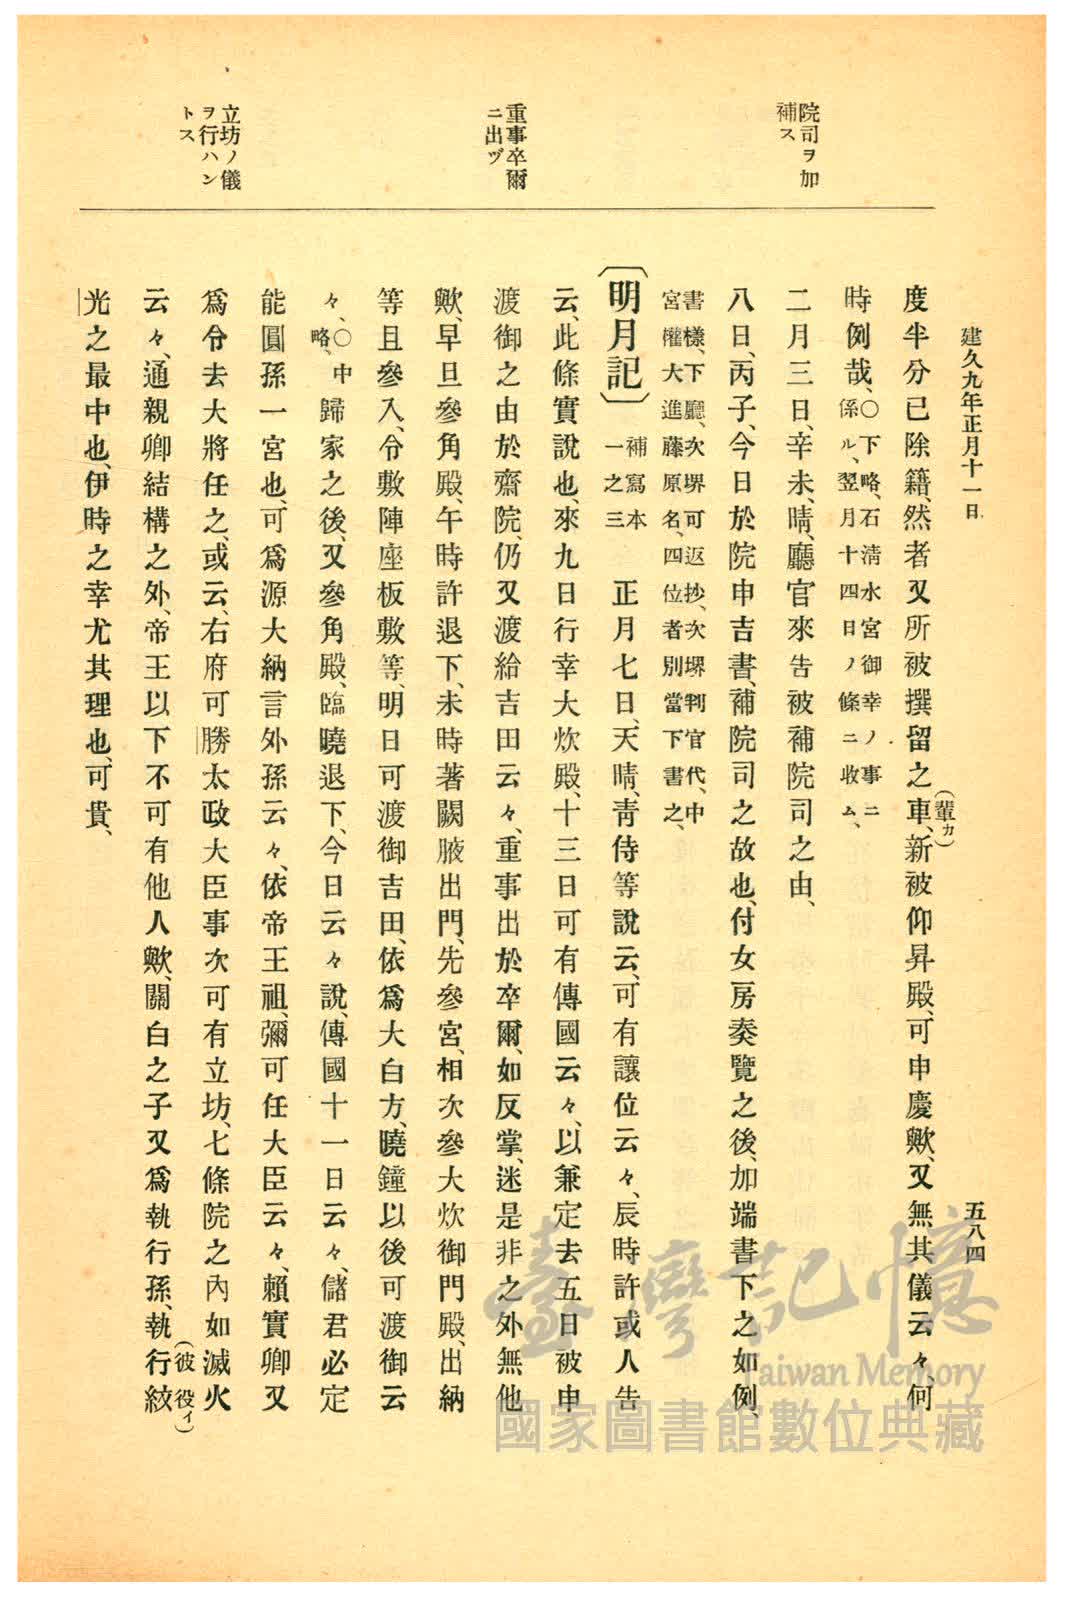 建久九年正月十一日
五八四
院司ヲ加
補ス
重事卒爾
ニ出ヅ
立坊ノ儀
ヲ行ハン
トス
度半分已除籍、然者又所被撰留之車、新被仰昇殿、可申慶歟、又無其儀云々、何
(輩カ)
時例哉、○下略、石清水宮御幸ノ事ニ
係ル、翌月十四日ノ條ニ收ム、
二月三日、辛未、晴、廳官來告被補院司之由、
八日、丙子、今日於院申吉書、補院司之故也、付女房奏覽之後、加端書下之如例、
書樣、下廳、次堺可返抄、次堺判官代、中
宮權大進藤原名、四位者別當下書之、
〔明月記〕補寫本
一之三
正月七日、天晴、靑侍等說云、可有讓位云々、辰時許或人告
云、此條實說也、來九日行幸大炊殿、十三日可有傳國云々、以兼定去五日被申
渡御之由於齋院、仍又渡給吉田云々、重事出於卒爾、如反掌、迷是非之外無他
歟、早旦參角殿、午時許退下、未時著闕腋出門、先參宮、相次參大炊御門殿、出納
等且參入、令敷陣座板敷等、明日可渡御吉田、依爲大白方、曉鐘以後可渡御云
々、○中
略、歸家之後、又參角殿、臨曉退下、今日云々說、傳國十一日云々、儲君必定
能圓孫一宮也、可爲源大納言外孫云々、依帝王祖、彌可任大臣云々、賴實卿又
爲令去大將任之、或云、右府可勝太政大臣事次可有立坊、七條院之內如滅火
云々、通親卿結構之外、帝王以下不可有他人歟、關白之子又爲執行孫、執行紋
(彼役イ)
光之最中也、伊時之幸尤其理也、可貴、
臺灣記憶
Taiwan Memory
國家圖書館數位典藏